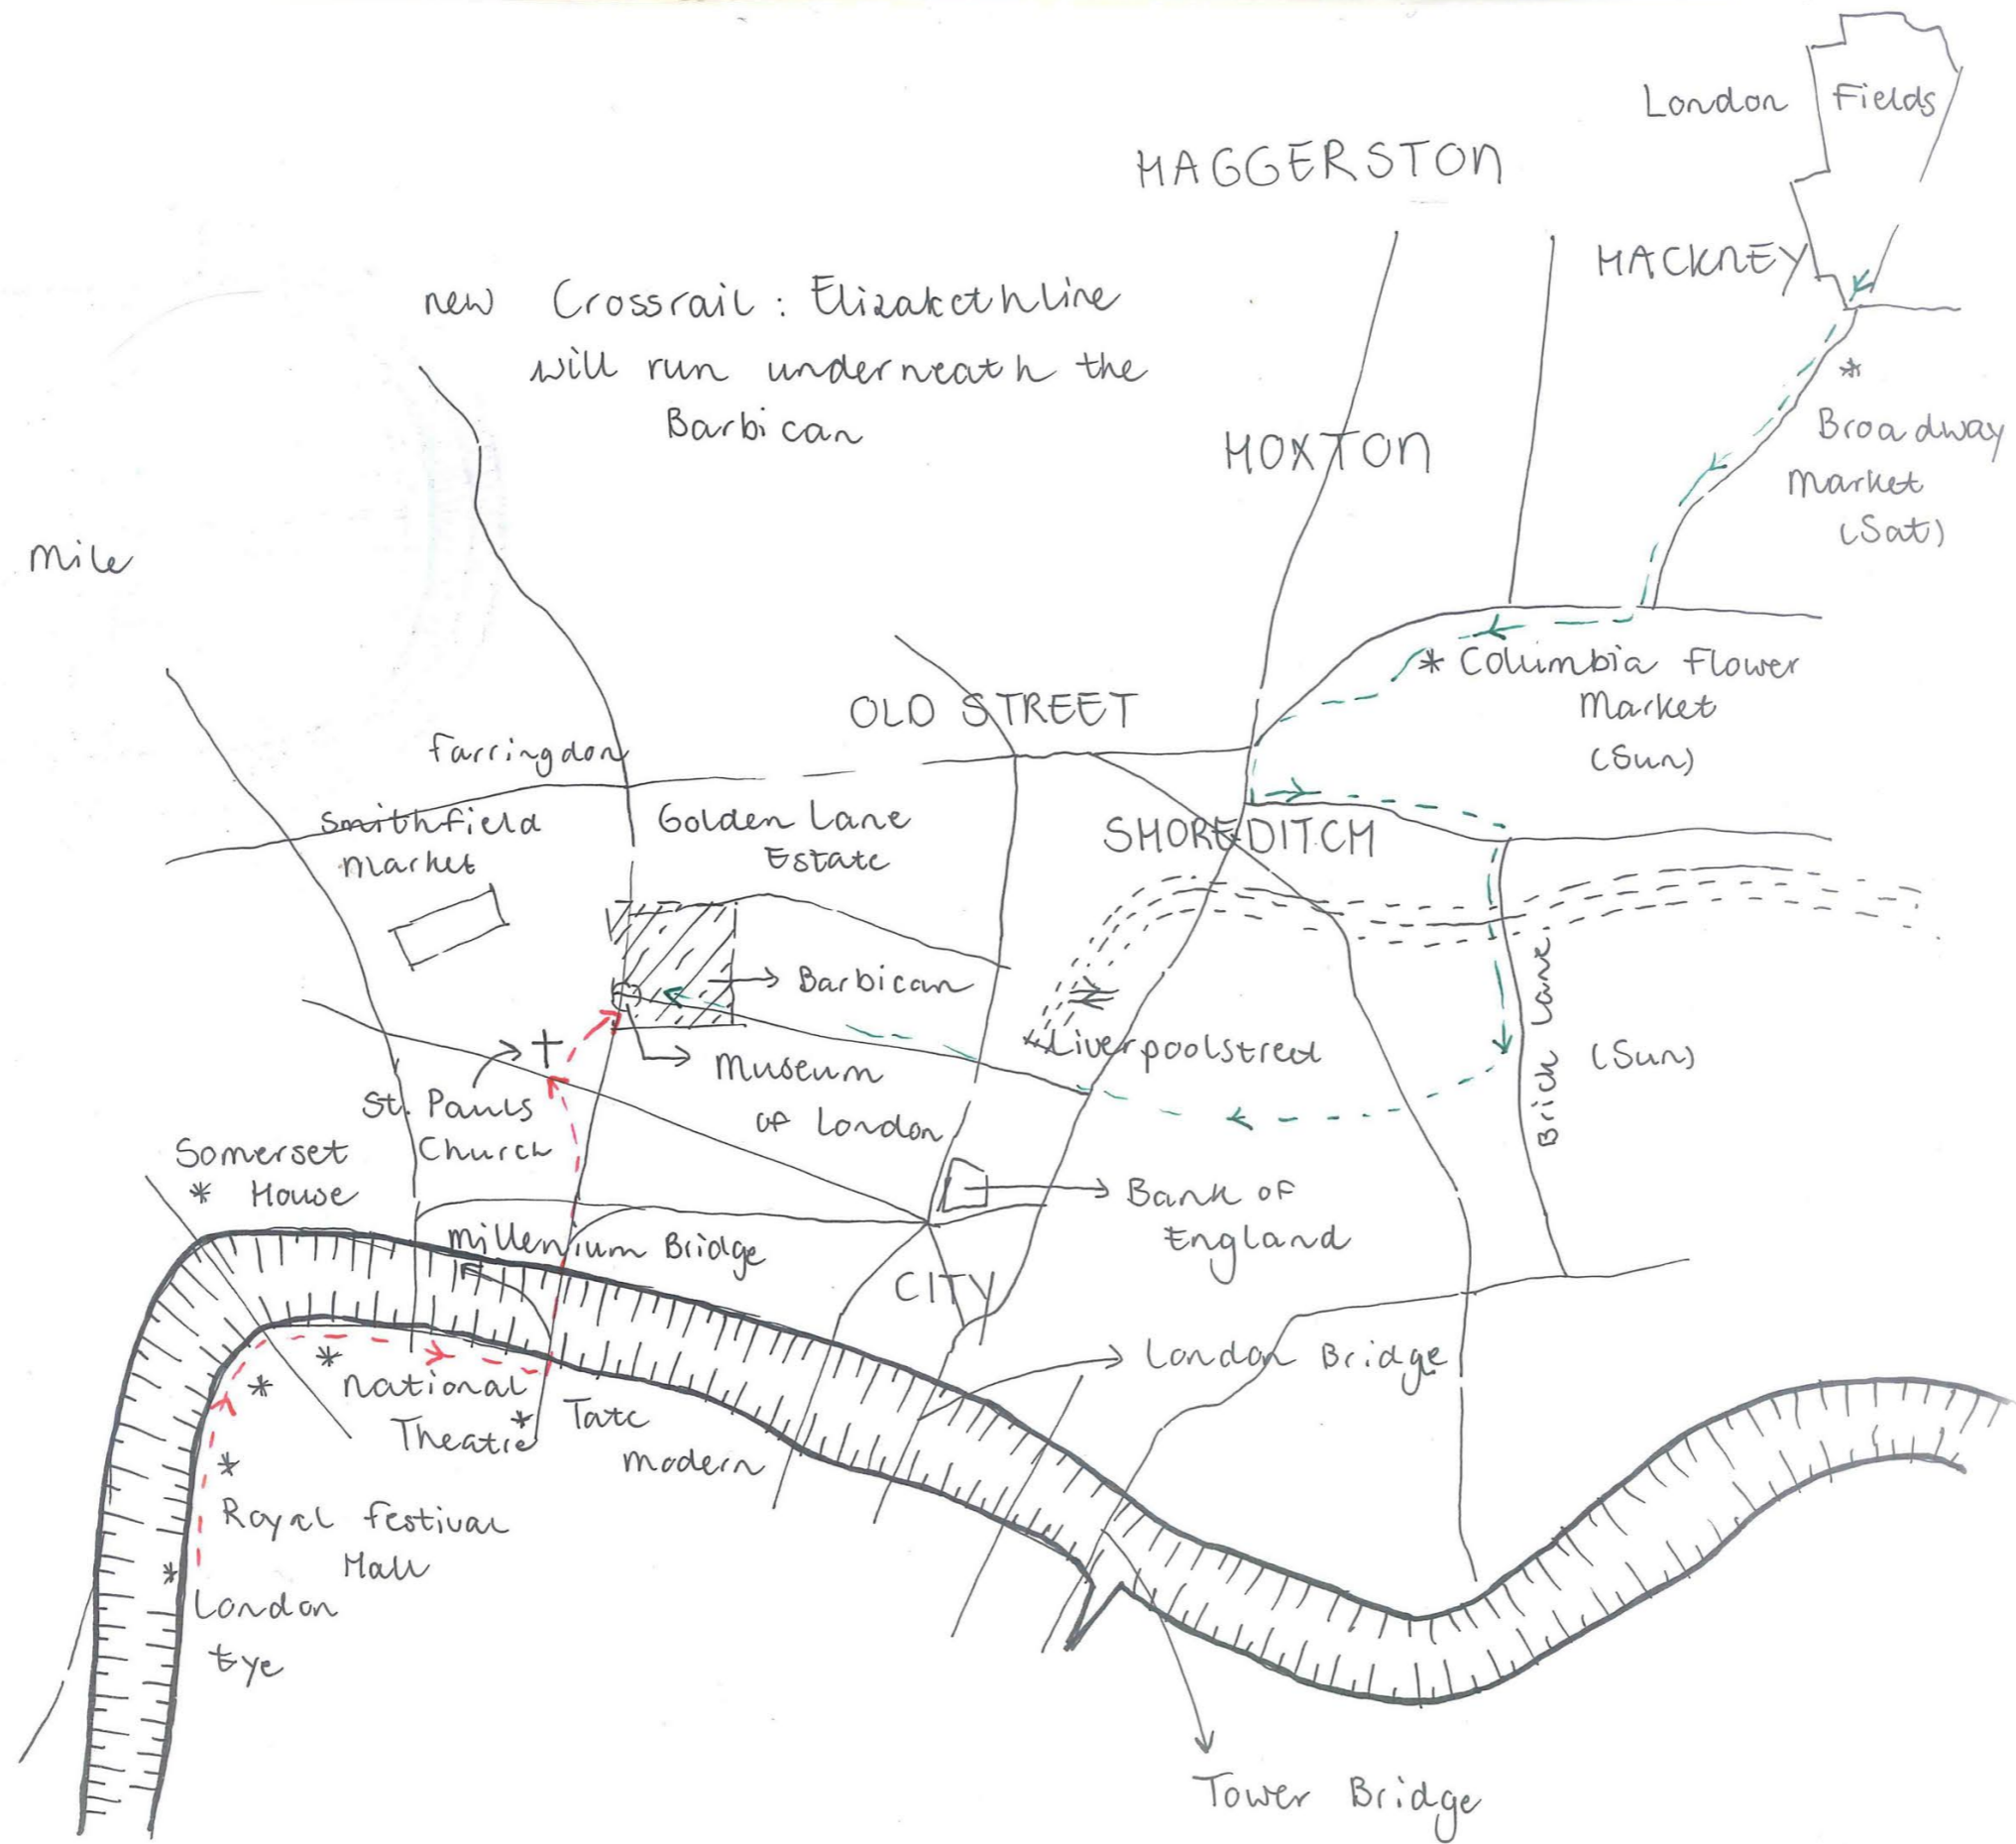 London Fields
HAGGERSTON
HACKNEY
new Crossrail: Elizabethline
will run underneath the
Barbican
*
Broadway
Market
(Sat)
HOXTON
Mile
* Columbia Flower
Market
(Sun)
OLD STREET
Farringdon
Smithfield
Market
Golden Lane
Estate
SHOREDITCH
Barbican
Liverpoolstreet
Brick Lane.
(Sun)
Museum
of London
St. Pauls
Church
Somerset
* House
Bank of
England
Millenium Bridge
CITY
London Bridge
*
*
National
Theatre
*
Tate
Modern
*
Royal Festival
Hall
*
London
Eye
Tower Bridge